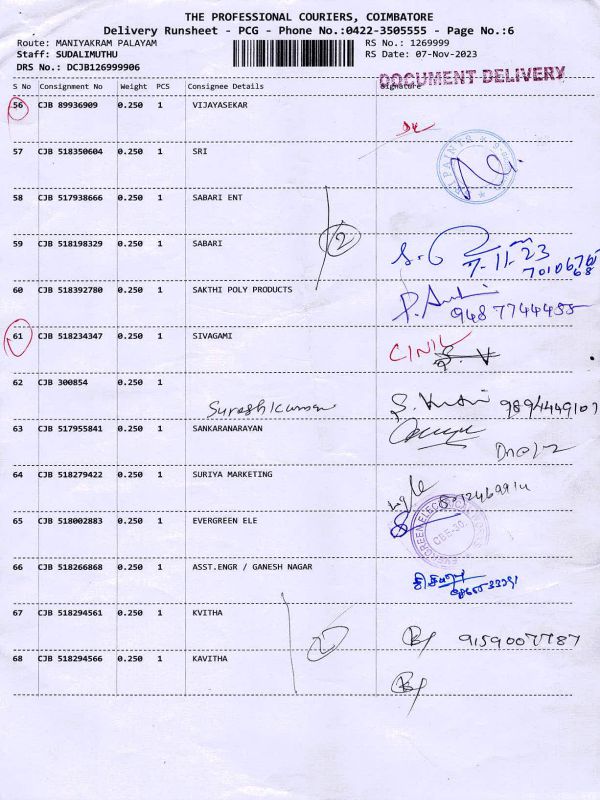 THE PROFESSIONAL COURIERS, COIMBATORE
Delivery Runsheet - PCG - Phone No.:0422-3505555 - Page No.:6
Route: MANIYAKRAM PALAYAM RS No.: 1269999
Staff: SUDALIMUTHU RS Date: 07-Nov-2023
DRS No.: DCJB126999906
DOCUMENT DELIVERY
S No Consignment No Weight PCS Consignee Details Signature
56 CJB 89936909 0.250 1 VIJAYASEKAR
57 CJB 518350604 0.250 1 SRI
58 CJB 517938666 0.250 1 SABARI ENT
2
59 CJB 518198329 0.250 1 SABARI
7-11-23
60 CJB 518392780 0.250 1 SAKTHI POLY PRODUCTS
9487744455
61 CJB 518234347 0.250 1 SIVAGAMI
62 CJB 300854 0.250 1
Sureshkumar
9894449107
63 CJB 517955841 0.250 1 SANKARANARAYAN
64 CJB 518279422 0.250 1 SURIYA MARKETING
65 CJB 518002883 0.250 1 EVERGREEN ELE
EVERGREEN ELECTRICAL
CBE-30.
66 CJB 518266868 0.250 1 ASST.ENGR / GANESH NAGAR
67 CJB 518294561 0.250 1 KVITHA
2
9159007787
68 CJB 518294566 0.250 1 KAVITHA